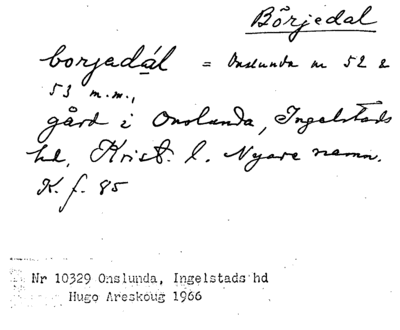 Börjedal
borjadál = Onslunda nr 52 &
53 m.m.,
gård i Onslunda, Ingelstads
hd, Krist. l. Nyare namn.
K. f. 85
Nr 10329 Onslunda, Ingelstads hd
Hugo Areskoug 1966